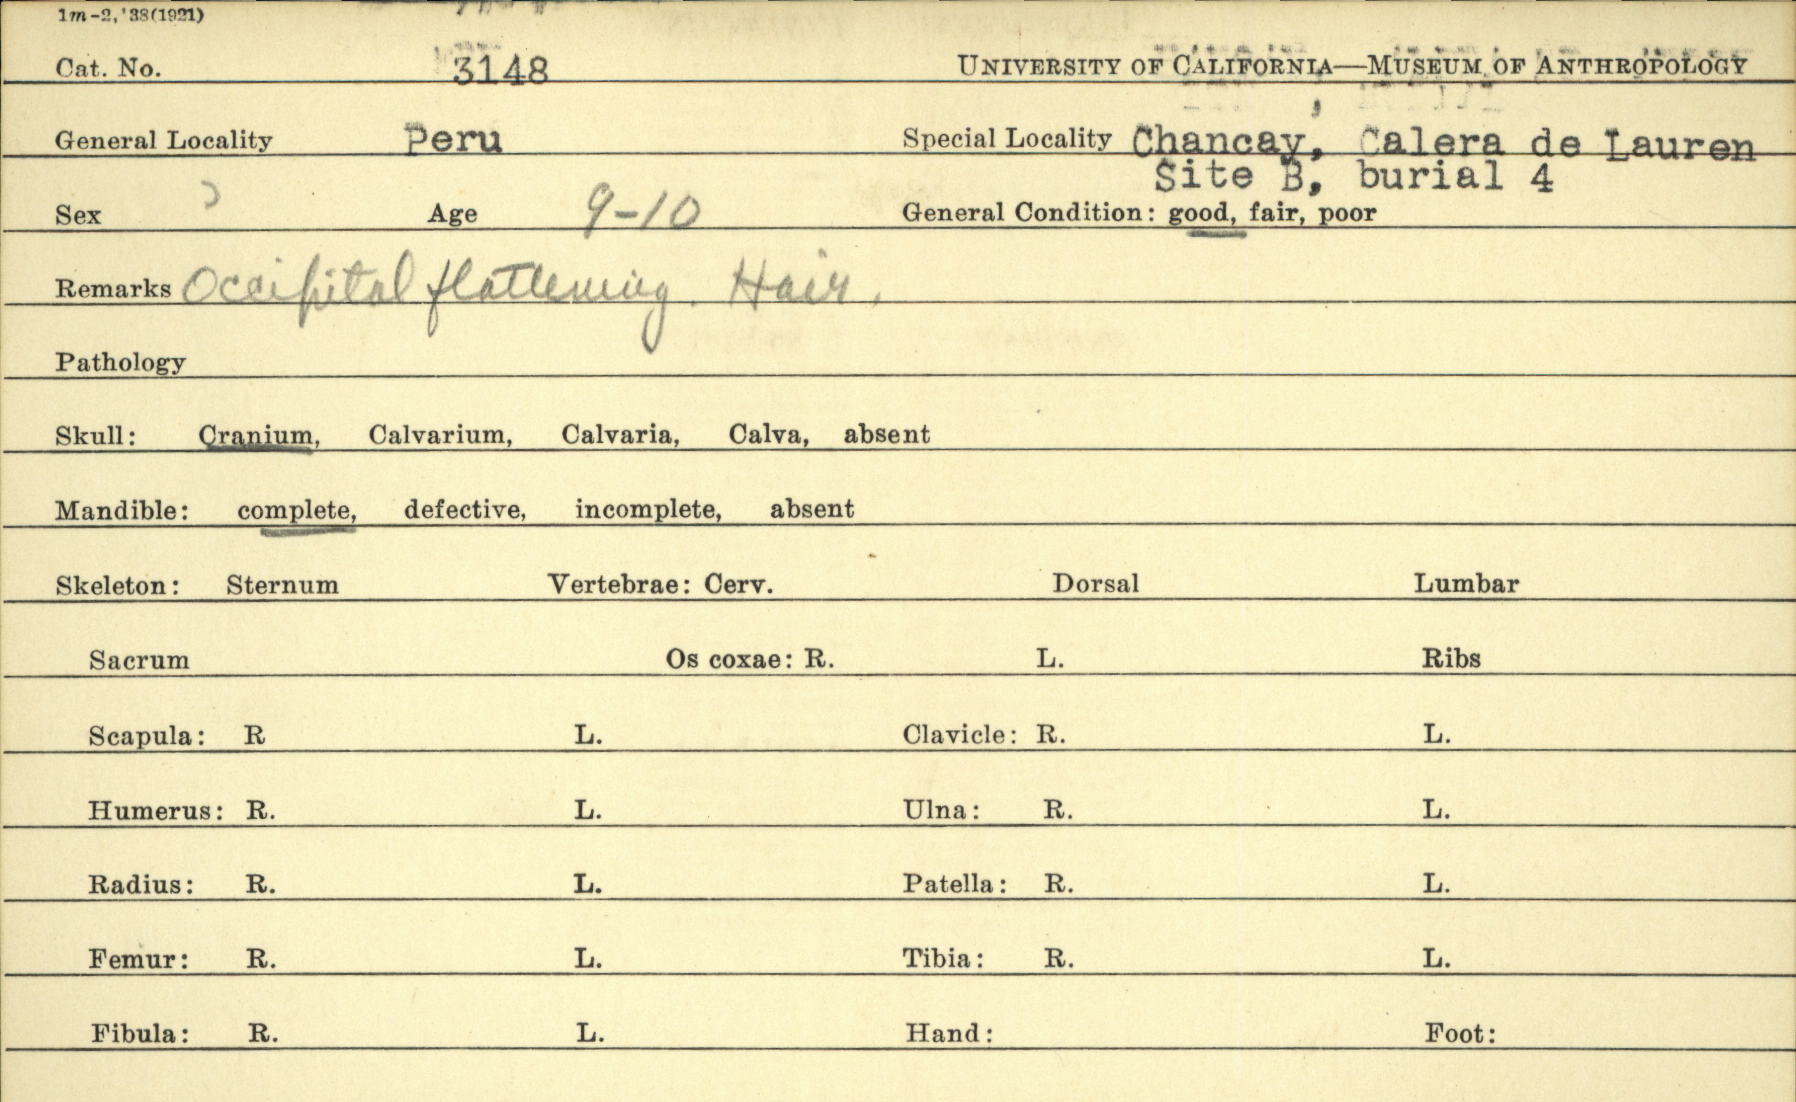 1m-2,'38(1921)
Cat. No. 3148 UNIVERSITY OF CALIFORNIA—MUSEUM OF ANTHROPOLOGY
General Locality Peru Special Locality Chancay, Calera de Lauren
Site B, burial 4
Sex ? Age 9-10 General Condition: good, fair, poor
Remarks Occipital flattening. Hair.
Pathology
Skull: Cranium, Calvarium, Calvaria, Calva, absent
Mandible: complete, defective, incomplete, absent
Skeleton: Sternum Vertebrae: Cerv. Dorsal Lumbar
Sacrum Os coxae: R. L. Ribs
Scapula: R L. Clavicle: R. L.
Humerus: R. L. Ulna: R. L.
Radius: R. L. Patella: R. L.
Femur: R. L. Tibia: R. L.
Fibula: R. L. Hand: Foot: